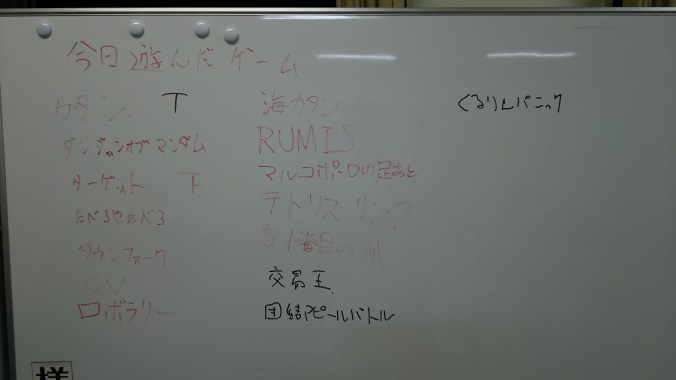 今日遊んだゲーム
カタン T
ダンジョンオブマンダム
ターゲット T
たべるやたべる
タウンフォーク
ロボラリー
海カタン
RUMIS
マルコポーロの足あと
テトリスリンク
51番目の州
交易王
団結アピールバトル
くるりんパニック
様